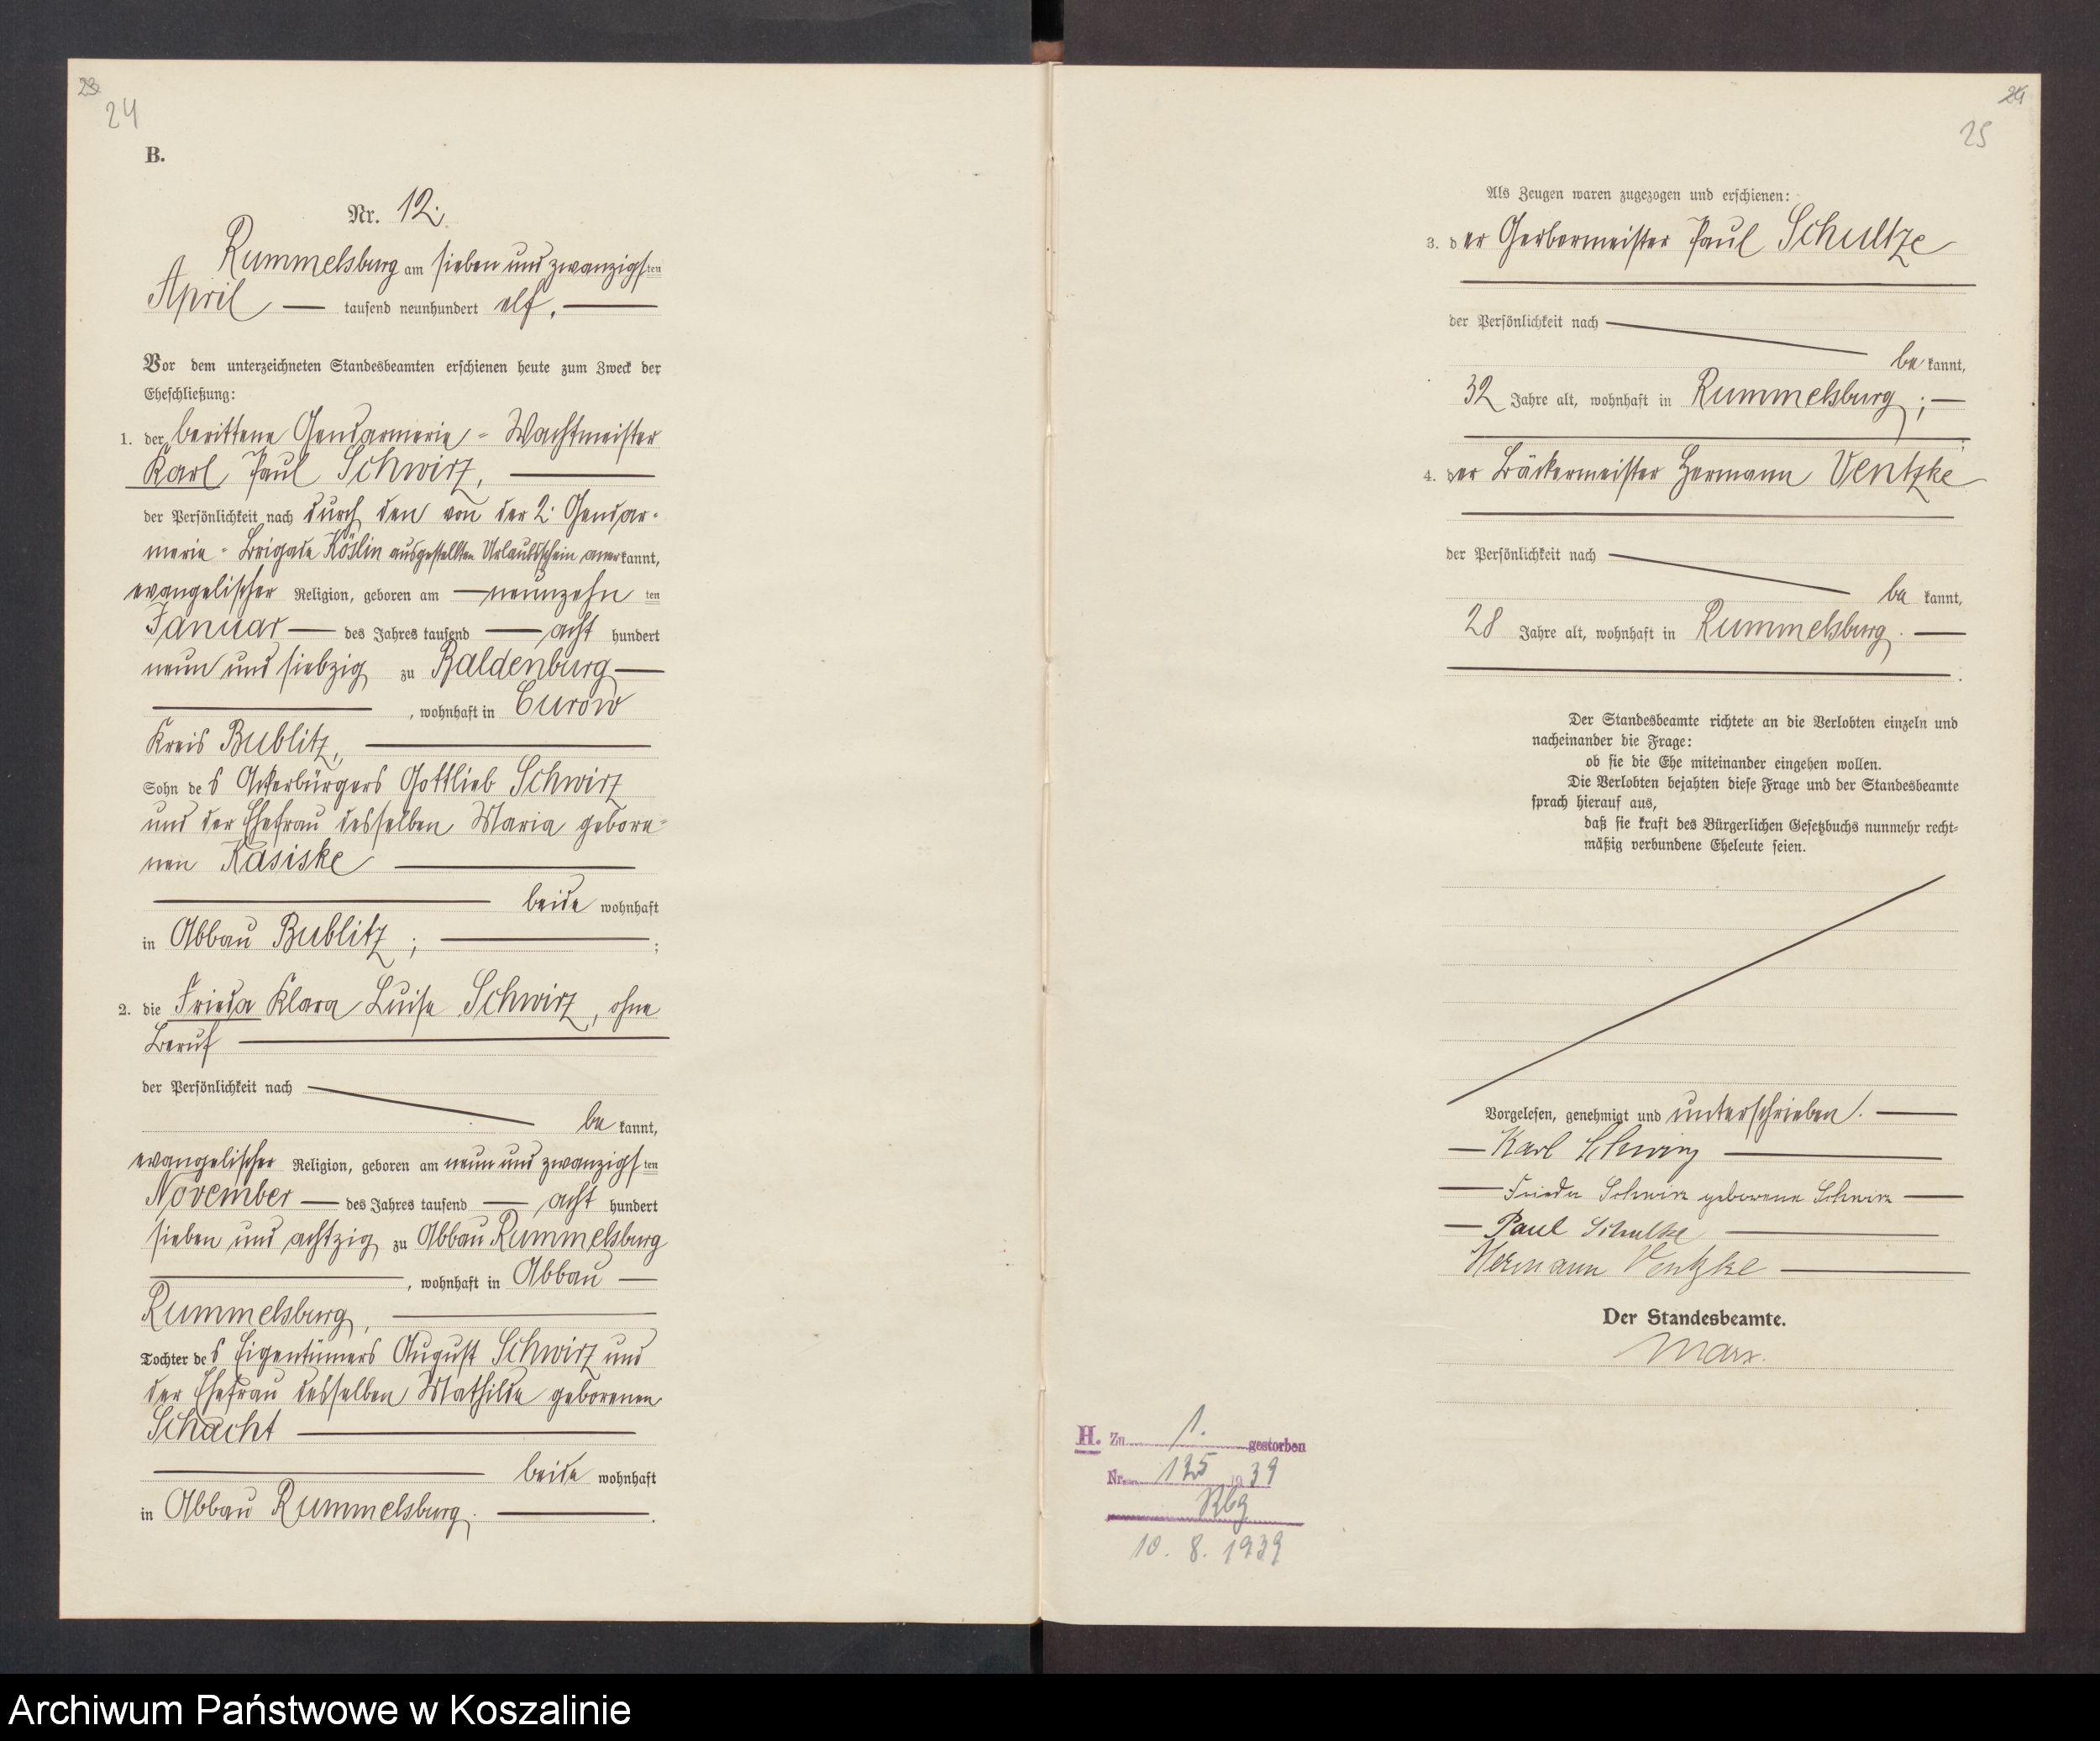 23
24
B.
Nr. 12.
Rummelsburg am sieben und zwanzigsten
April tausend neunhundert elf.
Vor dem unterzeichneten Standesbeamten erschienen heute zum Zweck der
Eheschließung:
1. der berittene Gendarmerie-Wachtmeister
Karl Paul Schwirz,
der Persönlichkeit nach durch den von der 2. Gendar-
merie-Brigade Köslin ausgestellten Urlaubsschein anerkannt,
evangelischer Religion, geboren am neunzehnten
Januar des Jahres tausend acht hundert
neun und siebzig zu Baldenburg
, wohnhaft in Curow
Kreis Bublitz,
Sohn des Ackerbürgers Gottlieb Schwirz
und der Ehefrau desselben Maria gebore-
nen Kasiske
beide wohnhaft
in Abbau Bublitz ; ;
2. die Frieda Klara Luise Schwirz, ohne
Beruf
der Persönlichkeit nach
bekannt,
evangelischer Religion, geboren am neun und zwanzigsten
November des Jahres tausend acht hundert
sieben und achtzig zu Abbau Rummelsburg
, wohnhaft in Abbau
Rummelsburg,
Tochter des Eigentümers August Schwirz und
der Ehefrau desselben Mathilde geborenen
Schacht
beide wohnhaft
in Abbau Rummelsburg. .
24
25
Als Zeugen waren zugezogen und erschienen:
3. der Gerbermeister Paul Schultze
der Persönlichkeit nach
bekannt,
32 Jahre alt, wohnhaft in Rummelsburg ;
;
4. der Bäckermeister Hermann Ventzke
der Persönlichkeit nach
bekannt,
28 Jahre alt, wohnhaft in Rummelsburg.
.
Der Standesbeamte richtete an die Verlobten einzeln und
nacheinander die Frage:
ob sie die Ehe miteinander eingehen wollen.
Die Verlobten bejahten diese Frage und der Standesbeamte
sprach hierauf aus,
daß sie kraft des Bürgerlichen Gesetzbuchs nunmehr recht-
mäßig verbundene Eheleute seien.
Vorgelesen, genehmigt und unterschrieben.
Karl Schwirz
Frieda Schwirz geborene Schwirz
Paul Schultze
Hermann Ventzke
Der Standesbeamte.
Marx.
H. Zu 1. gestorben
Nr. 125 1939
Rbg
10. 8. 1939
Archiwum Państwowe w Koszalinie